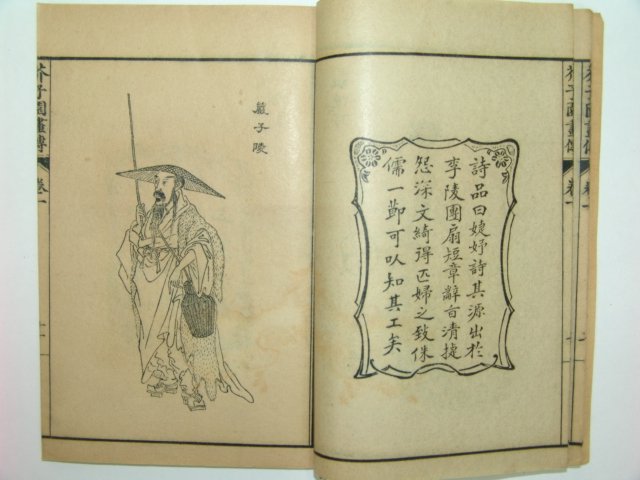 詩品曰婕妤詩其源出於
李陵團扇短章辭旨清捷
怨深文綺得匹婦之致侏
儒一節可以知其工矣
嚴子陵
芥子園畫傳
卷一
芥子園畫傳
卷一
芥子園畫傳
卷一